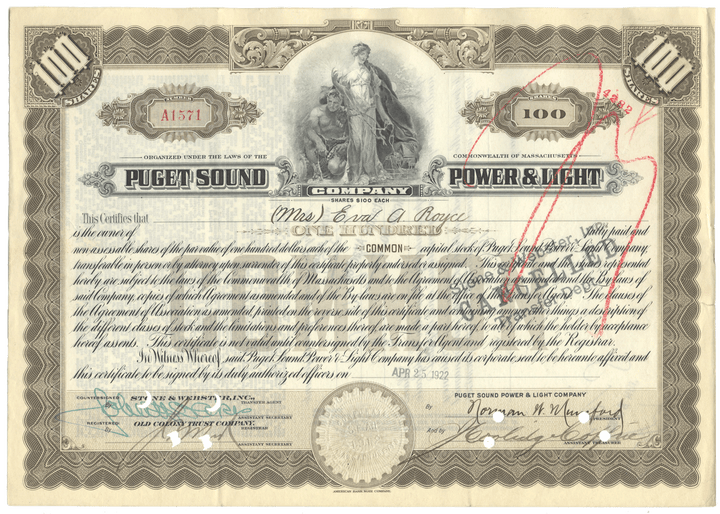 100
SHARES
100
SHARES
NUMBER
A1571
SHARES
100
4332
ORGANIZED UNDER THE LAWS OF THE
COMMONWEALTH OF MASSACHUSETTS
PUGET SOUND
POWER & LIGHT
COMPANY
SHARES $100 EACH
This Certifies that (Mrs) Eva A Royce
is the owner of ONE HUNDRED fully paid and
non-assessable shares of the par value of one hundred dollars each of the COMMON capital stock of Puget Sound Power & Light Company,
transferable in person or by attorney upon surrender of this certificate properly endorsed or assigned. This certificate and the shares represented
hereby are subject to the laws of the Commonwealth of Massachusetts and to the Agreement of Association as amended and the By-laws of
said Company, copies of which Agreement as amended and of the By-laws are on file at the office of the Transfer Agent. The clauses of
the Agreement of Association as amended, printed on the reverse side of this certificate and containing among other things a description of
the different classes of stock and the limitations and preferences thereof, are made a part hereof, to all of which the holder by acceptance
hereof assents. This certificate is not valid until countersigned by the Transfer Agent and registered by the Registrar.
In Witness Whereof, said Puget Sound Power & Light Company has caused its corporate seal to be hereunto affixed and
this certificate to be signed by its duly authorized officers on APR 25 1922
Stone & Webster, Inc.
CANCELLED
Transfer Dept.
COUNTERSIGNED
STONE & WEBSTER, INC.,
TRANSFER AGENT
ASSISTANT SECRETARY
REGISTERED
OLD COLONY TRUST COMPANY,
REGISTRAR
ASSISTANT SECRETARY
PUGET SOUND POWER & LIGHT COMPANY
By
PRESIDENT
And by
ASSISTANT TREASURER
AMERICAN BANK NOTE COMPANY.